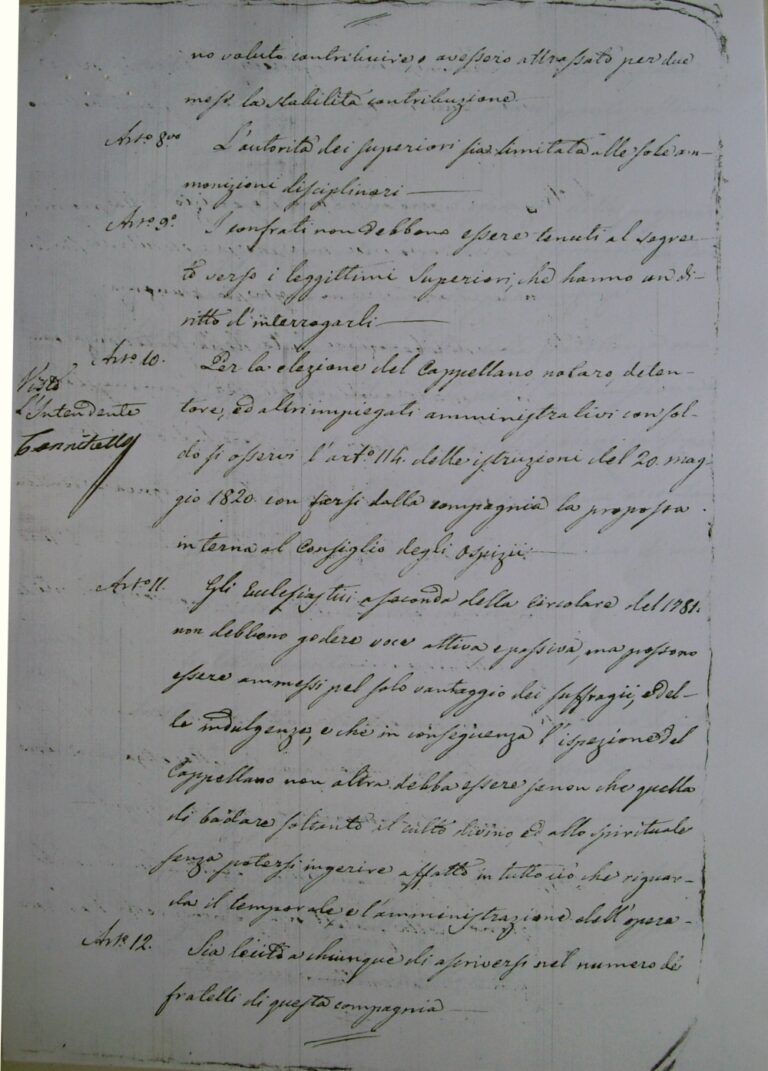 no voluto contribuire, o avessero attrassato per due
mesi la stabilita contribuzione
Arto. 8vo L'autorità dei superiori sia limitata alle sole am-
monizioni disciplinari
Arto. 9o. I confrati non debbono essere tenuti al segre-
to verso i leggittimi Superiori, che hanno un di-
ritto d'interrogarli
Arto. 10. Per la elezione del Cappellano notaro, deten-
tore, ed altri impiegati amministrativi con sol-
do si osservi l'arto. 114. delle istruzioni del 20. mag-
gio 1820. con farsi dalla compagnia la proposta
interna al Consiglio degli Ospizii.
Visto
L'Intendente
Arto. 11. Gli Ecclesiastici a seconda della Circolare del 1781.
non debbono godere voce attiva, e passiva, ma possono
essere ammessi pel solo vantaggio dei suffragii, e del-
le indulgenze, e che in conseguenza l'ispezione del
Cappellano non altra debba essere senon che quella
di badare soltanto il culto divino, ed allo spirituale
senza potersi ingerire affatto in tutto ciò che riguar-
da il temporale e l'amministrazione dell'opera-
Arto. 12. Sia lecito a chiunque di ascriversi nel numero de
fratelli di questa compagnia